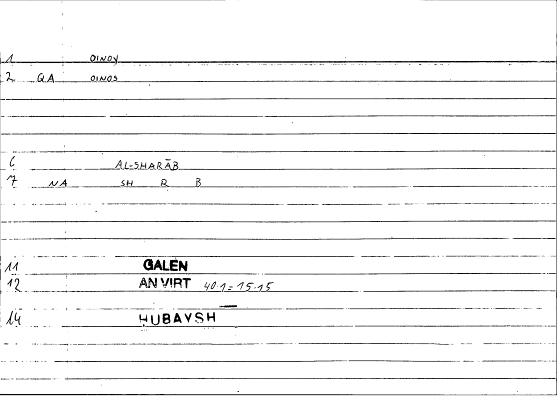 1 OINOY
2 QA OINOS
6 AL-SHARĀB
7 NA SH R B
11 GALEN
12 AN VIRT 40.1 = 15.15
14 HUBAYSH